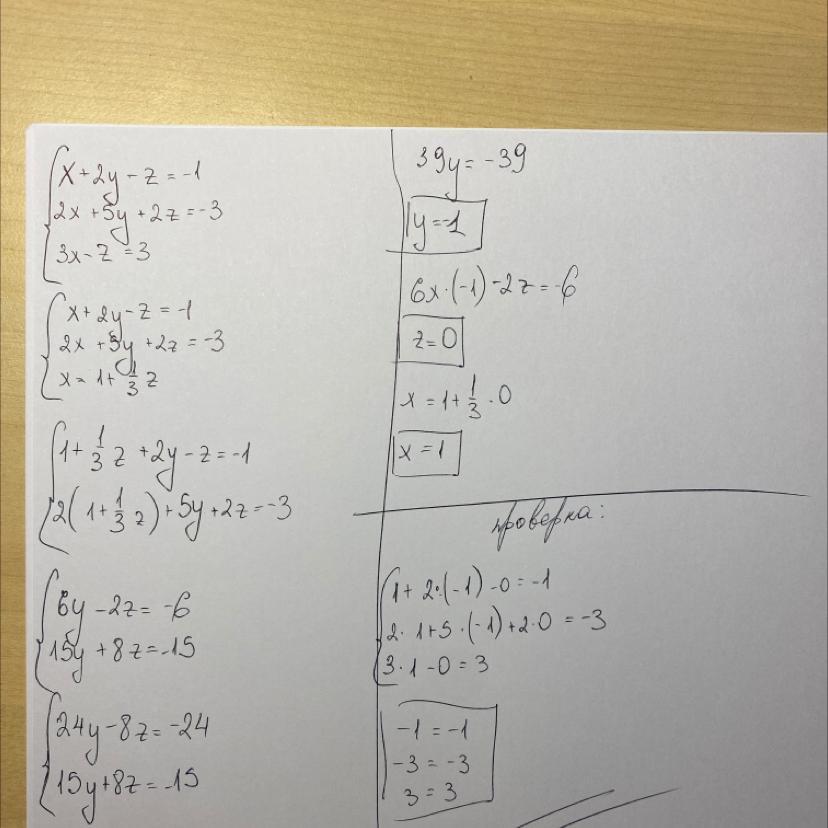 x + 2y - z = -1
2x + 5y + 2z = -3
3x - z = 3
x + 2y - z = -1
2x + 5y + 2z = -3
x = 1 + 1/3 z
1 + 1/3 z + 2y - z = -1
2(1 + 1/3 z) + 5y + 2z = -3
6y - 2z = -6
15y + 8z = -15
24y - 8z = -24
15y + 8z = -15
39y = -39
y = -1
6x · (-1) - 2z = -6
z = 0
x = 1 + 1/3 · 0
x = 1
проверка:
1 + 2 · (-1) - 0 = -1
2 · 1 + 5 · (-1) + 2 · 0 = -3
3 · 1 - 0 = 3
-1 = -1
-3 = -3
3 = 3